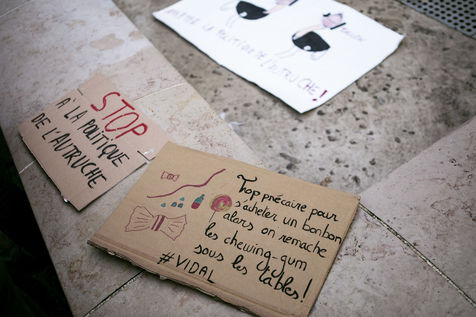 LA POLITIQUE DE L'AUTRUCHE !
STOP
À LA POLITIQUE
DE L'AUTRUCHE
Trop précaire pour
s'acheter un bonbon
alors on remache
les chewing-gum
sous les tables !
#VIDAL